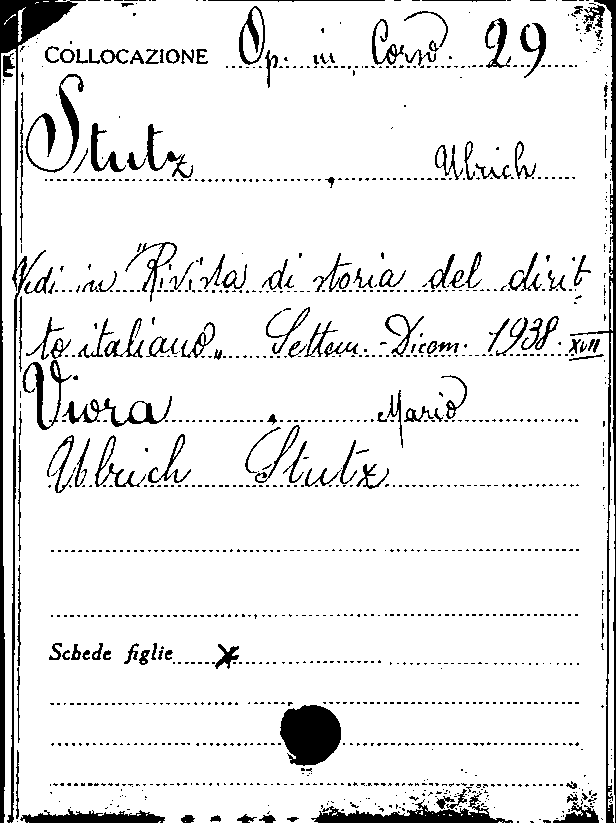 COLLOCAZIONE Op. in Corso. 29
Stutz , Ulrich
Vedi in "Rivista di storia del dirit-
to italiano" Settem.-Dicem. 1938. XVII
Viora , Mario
Ulrich Stutz
Schede figlie x